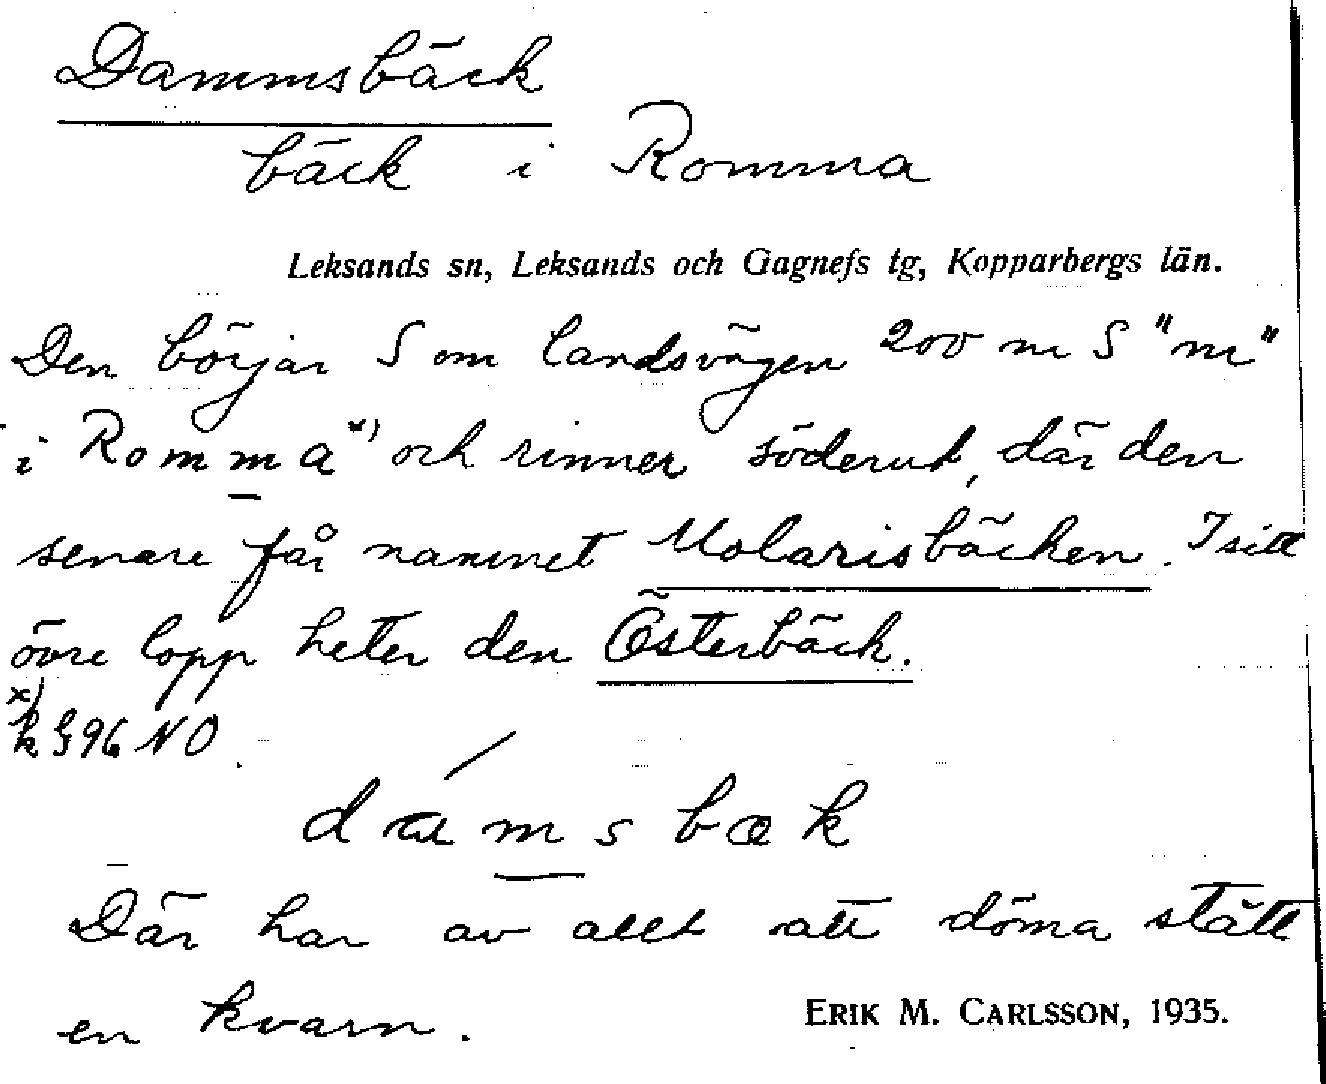 Dammsbäck
bäck i Romma
Leksands sn, Leksands och Gagnefs tg, Kopparbergs län.
Den börjar S om landsvägen 200 m S "m"
i Romma"x) och rinner söderut, där den
senare får namnet Molarisbäcken. I sitt
övre lopp heter den Österbäck.
x)
k § 96 NO
damsbæk
Där har av allt att döma stått
en kvarn.
ERIK M. CARLSSON, 1935.